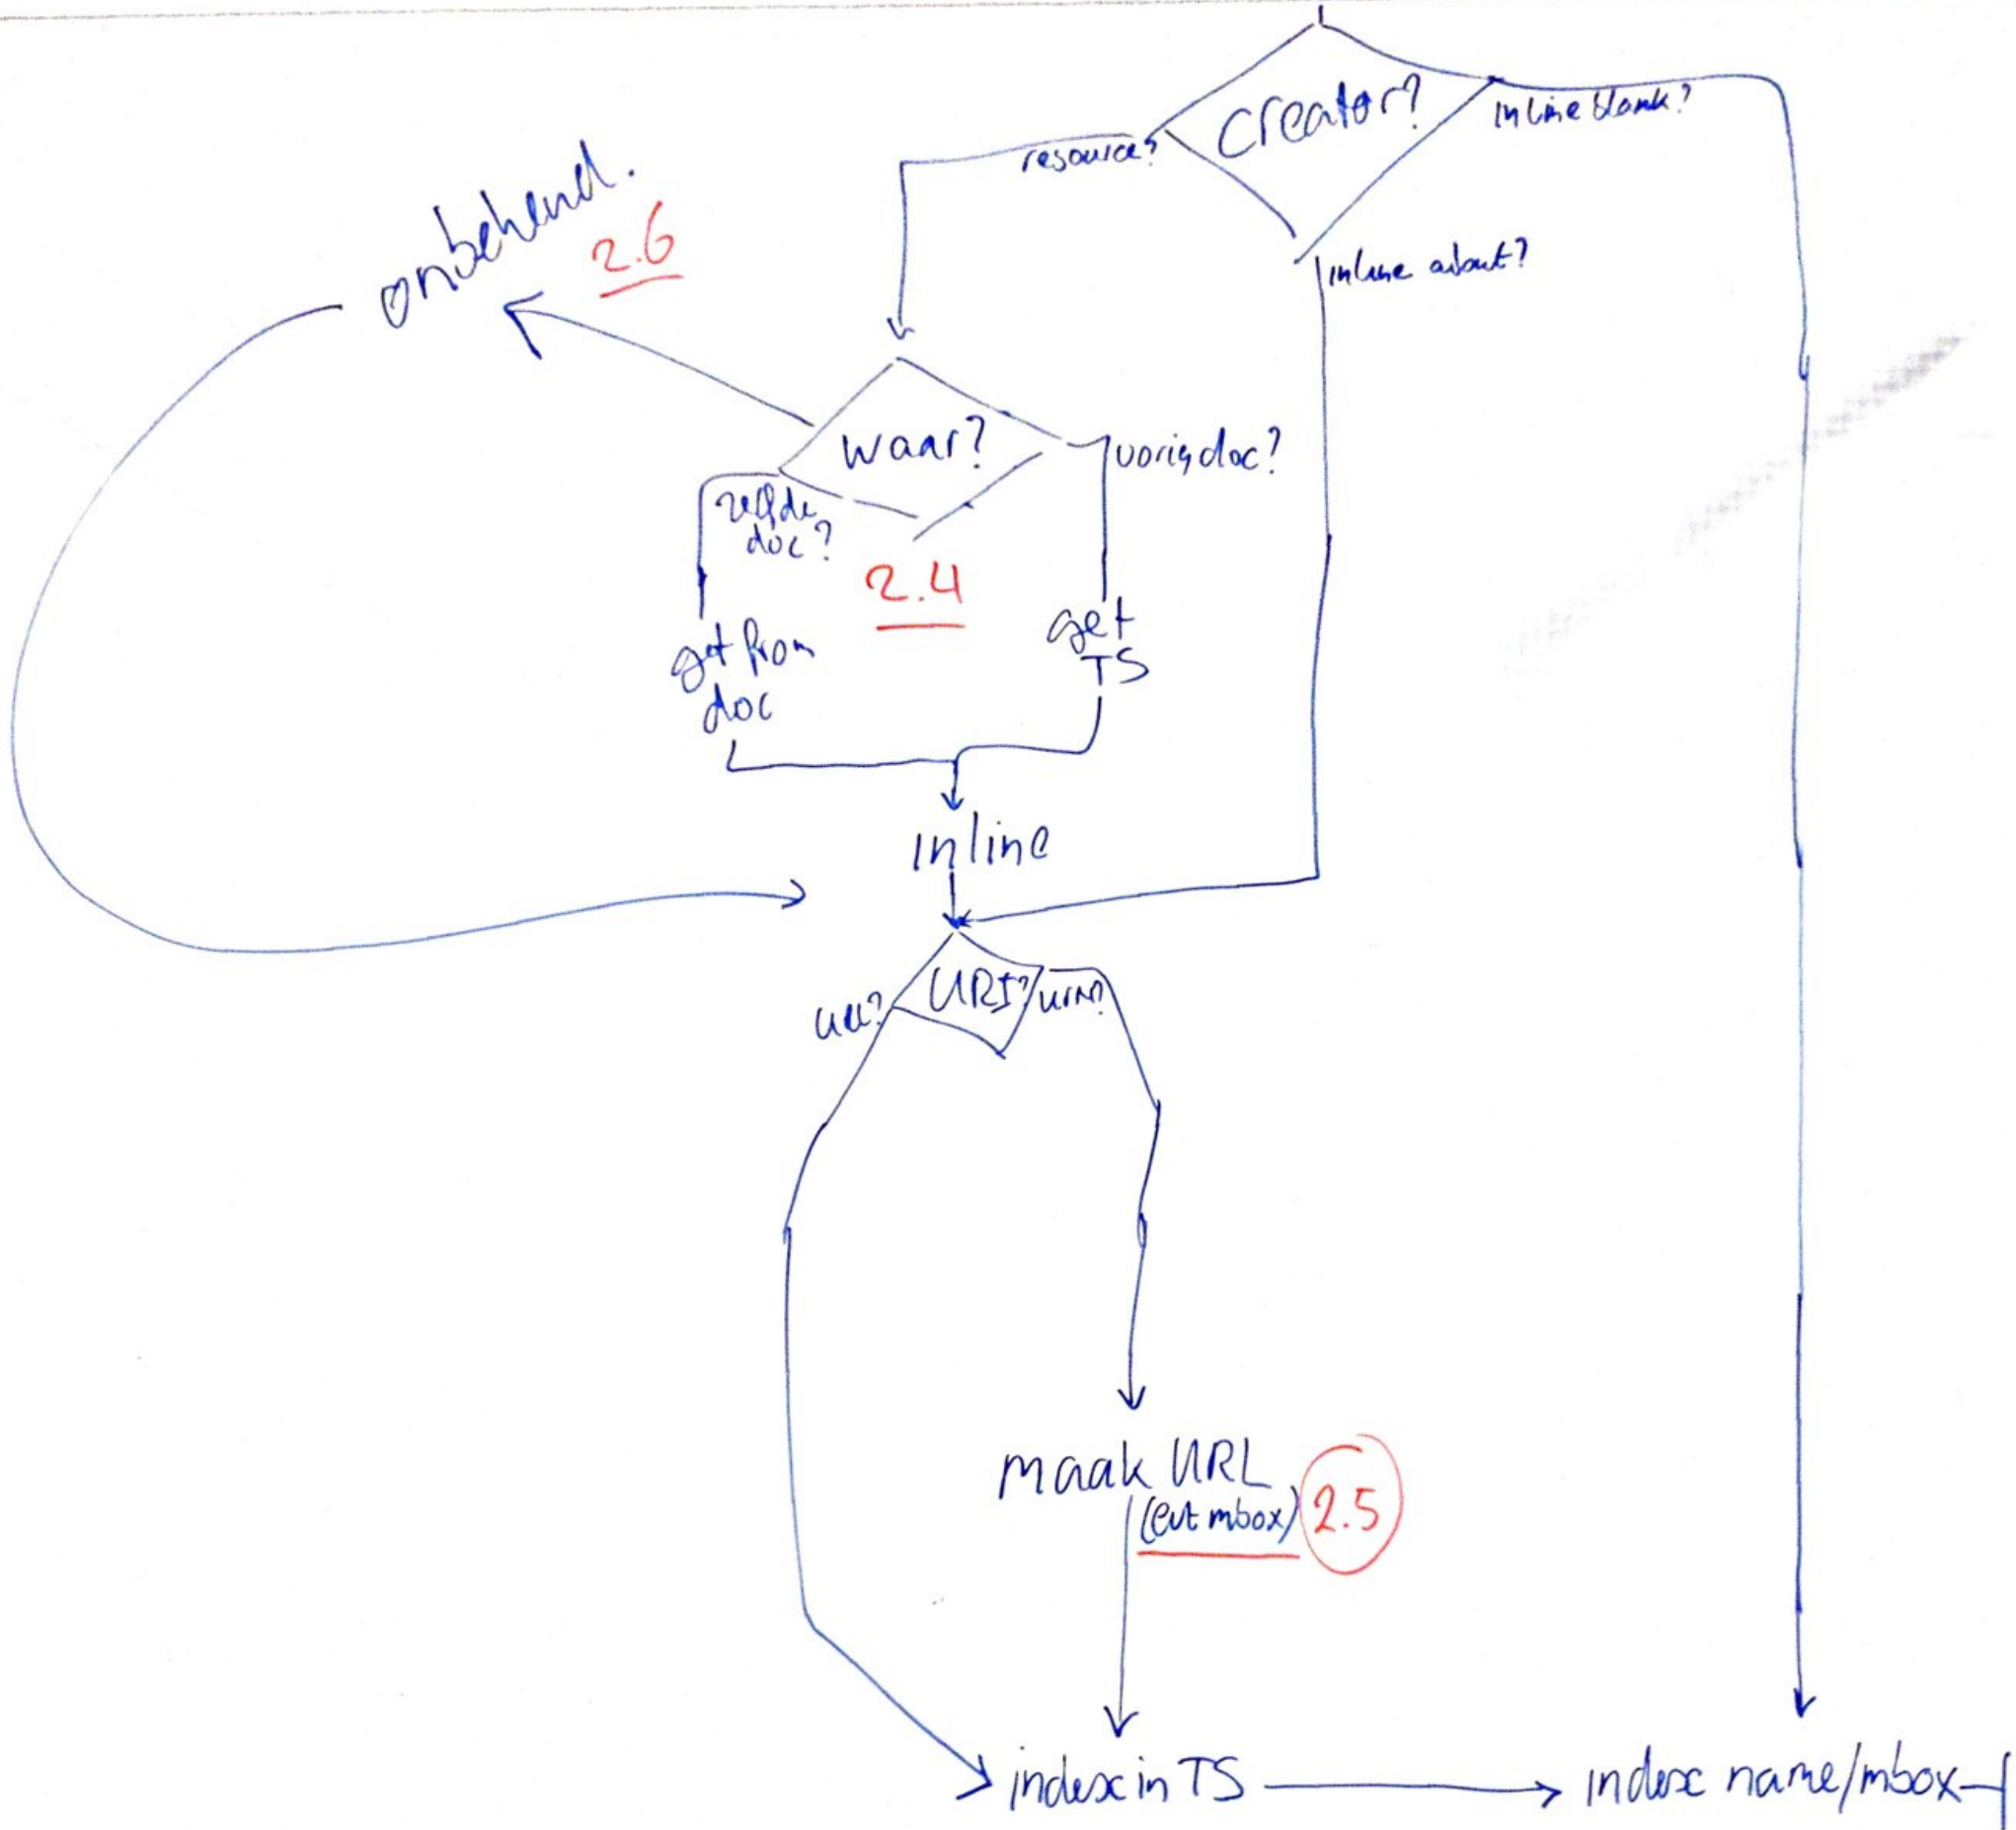 creator?
inline blank?
resource?
inline about?
onbekend.
2.6
waar?
vorig doc?
zelfde
doc?
2.4
get from
doc
get
TS
inline
URI?
url?
urn?
maak URL
(evt mbox)
2.5
index in TS
index name/mbox